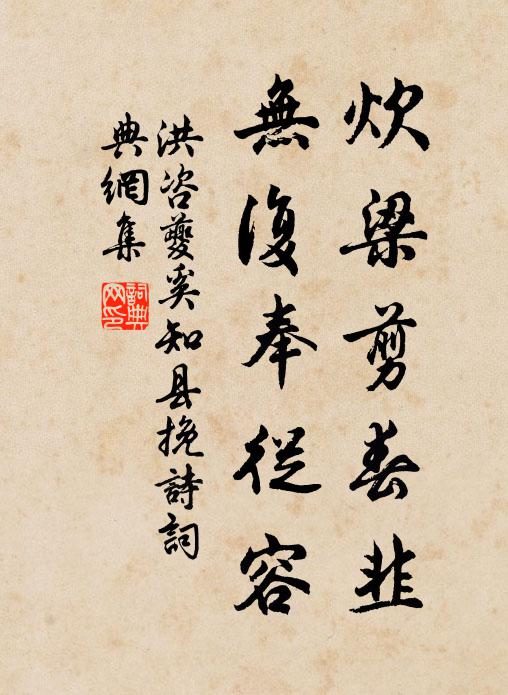 炊梁剪春韭
無復奉從容
洪咨夔奚知县挽詩詞
典網集
詞典網印